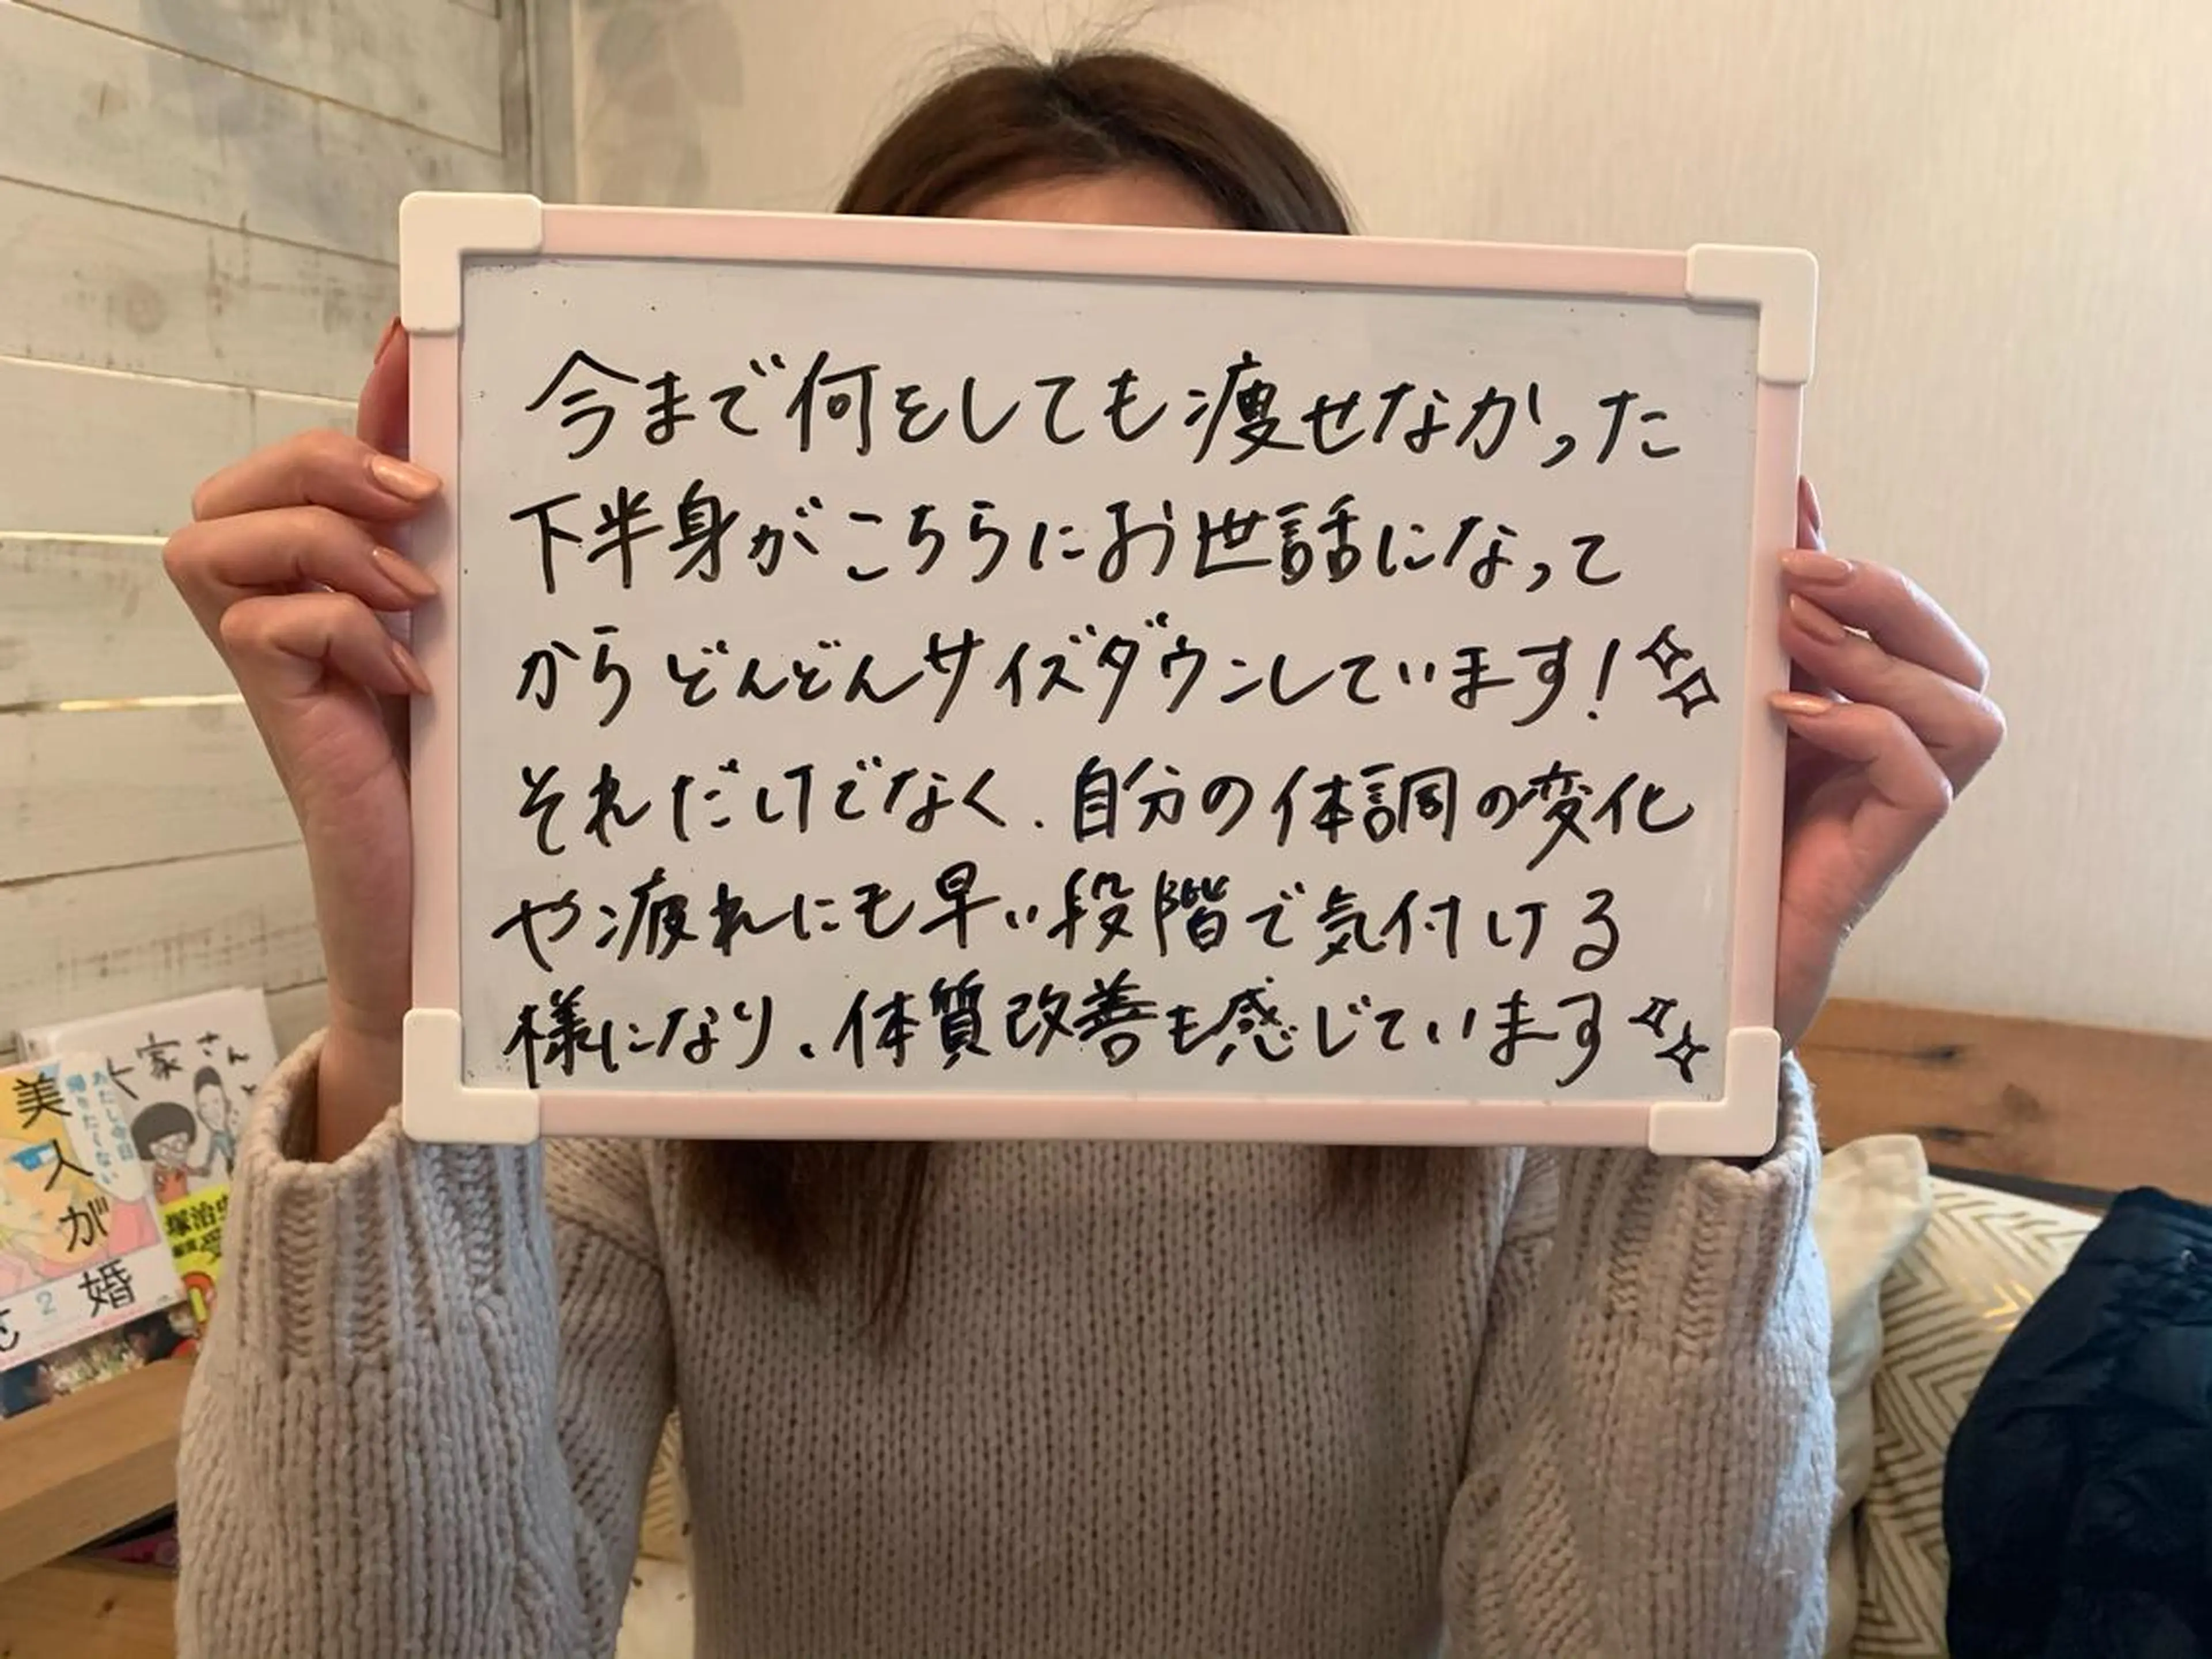 今まで何をしても痩せなかった
下半身がこちらにお世話になって
からどんどんサイズダウンしています!
それだけでなく、自分の体調の変化
や疲れにも早い段階で気付ける
様になり、体質改善も感じています
家さん
美人が婚
2
塚治虫